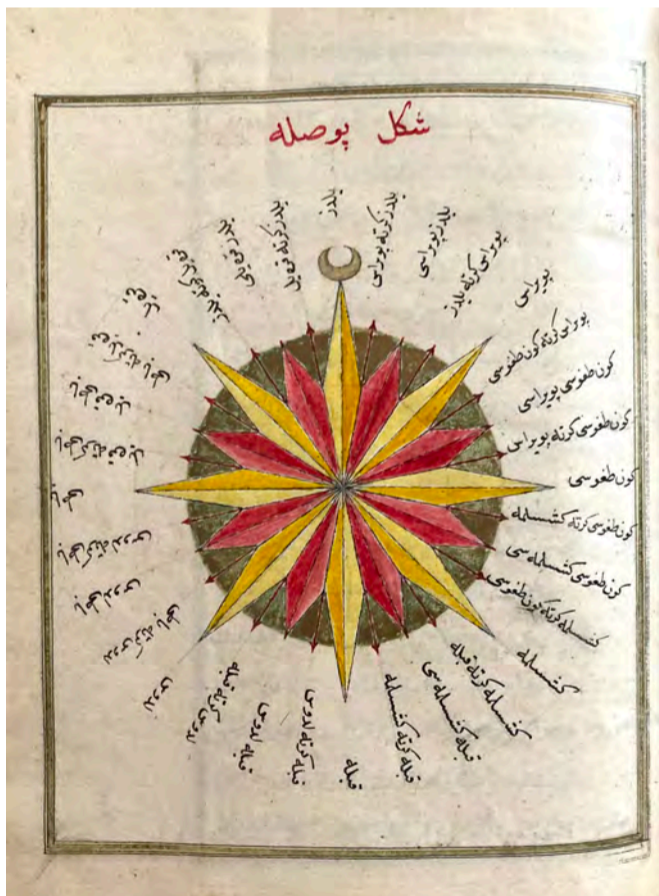 شكل پوصله
يلدز
يلدز كرته پويراس
يلدز پويراسى
پويراس كرته يلدز
پويراس
پويراس كرته كون طغوسى
كون طغوسى پويراسى
كون طغوسى كرته پويراس
كون طغوسى
كون طغوسى كرته كشسلمه
كون طغوسى كشسلمه سى
كشسلمه كرته كون طغوسى
كشسلمه
كشسلمه كرته قبله
قبله كشسلمه سى
قبله كرته كشسلمه
قبله
قبله كرته لدوس
قبله لدوس
لدوس كرته قبله
لدوس
لدوس كرته باطى
باطى لدوس
باطى كرته لدوس
باطى
باطى كرته قره يل
باطى قره يل
قره يل كرته باطى
قره يل كرته يلدز
يلدز قره يلى
يلدز كرته قره يل